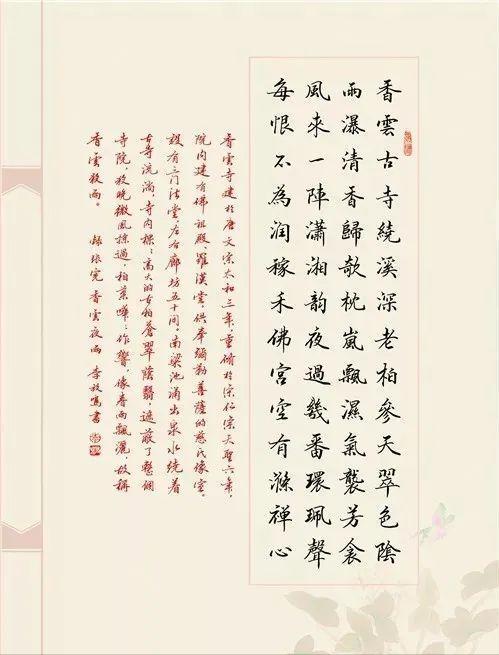 香雲古寺繞溪深老柏參天翠色陰
雨瀑清香歸欹枕嵐飄濕氣襲芳衾
風來一陣瀟湘韵夜過幾番環珮聲
每恨不為润稼禾佛宮空有滌禪心
香雲寺建於唐文宗太和三年,重脩於宋仁宗天聖六年,
院内建有佛祖殿、羅漢堂,供奉彌勒菩薩的慈氏像堂,
設有三门法堂,左右廊坊五十间。南梁池涌出泉水绕着
古寺流淌,寺内棵:高大的古柏蒼翠蔭翳,遮蔽了整個
寺院,夜晚微風掠過,柏葉嘩:作響,像春雨飄灑,故稱
香雲夜雨。 錄張完香雲夜雨 李鳴書